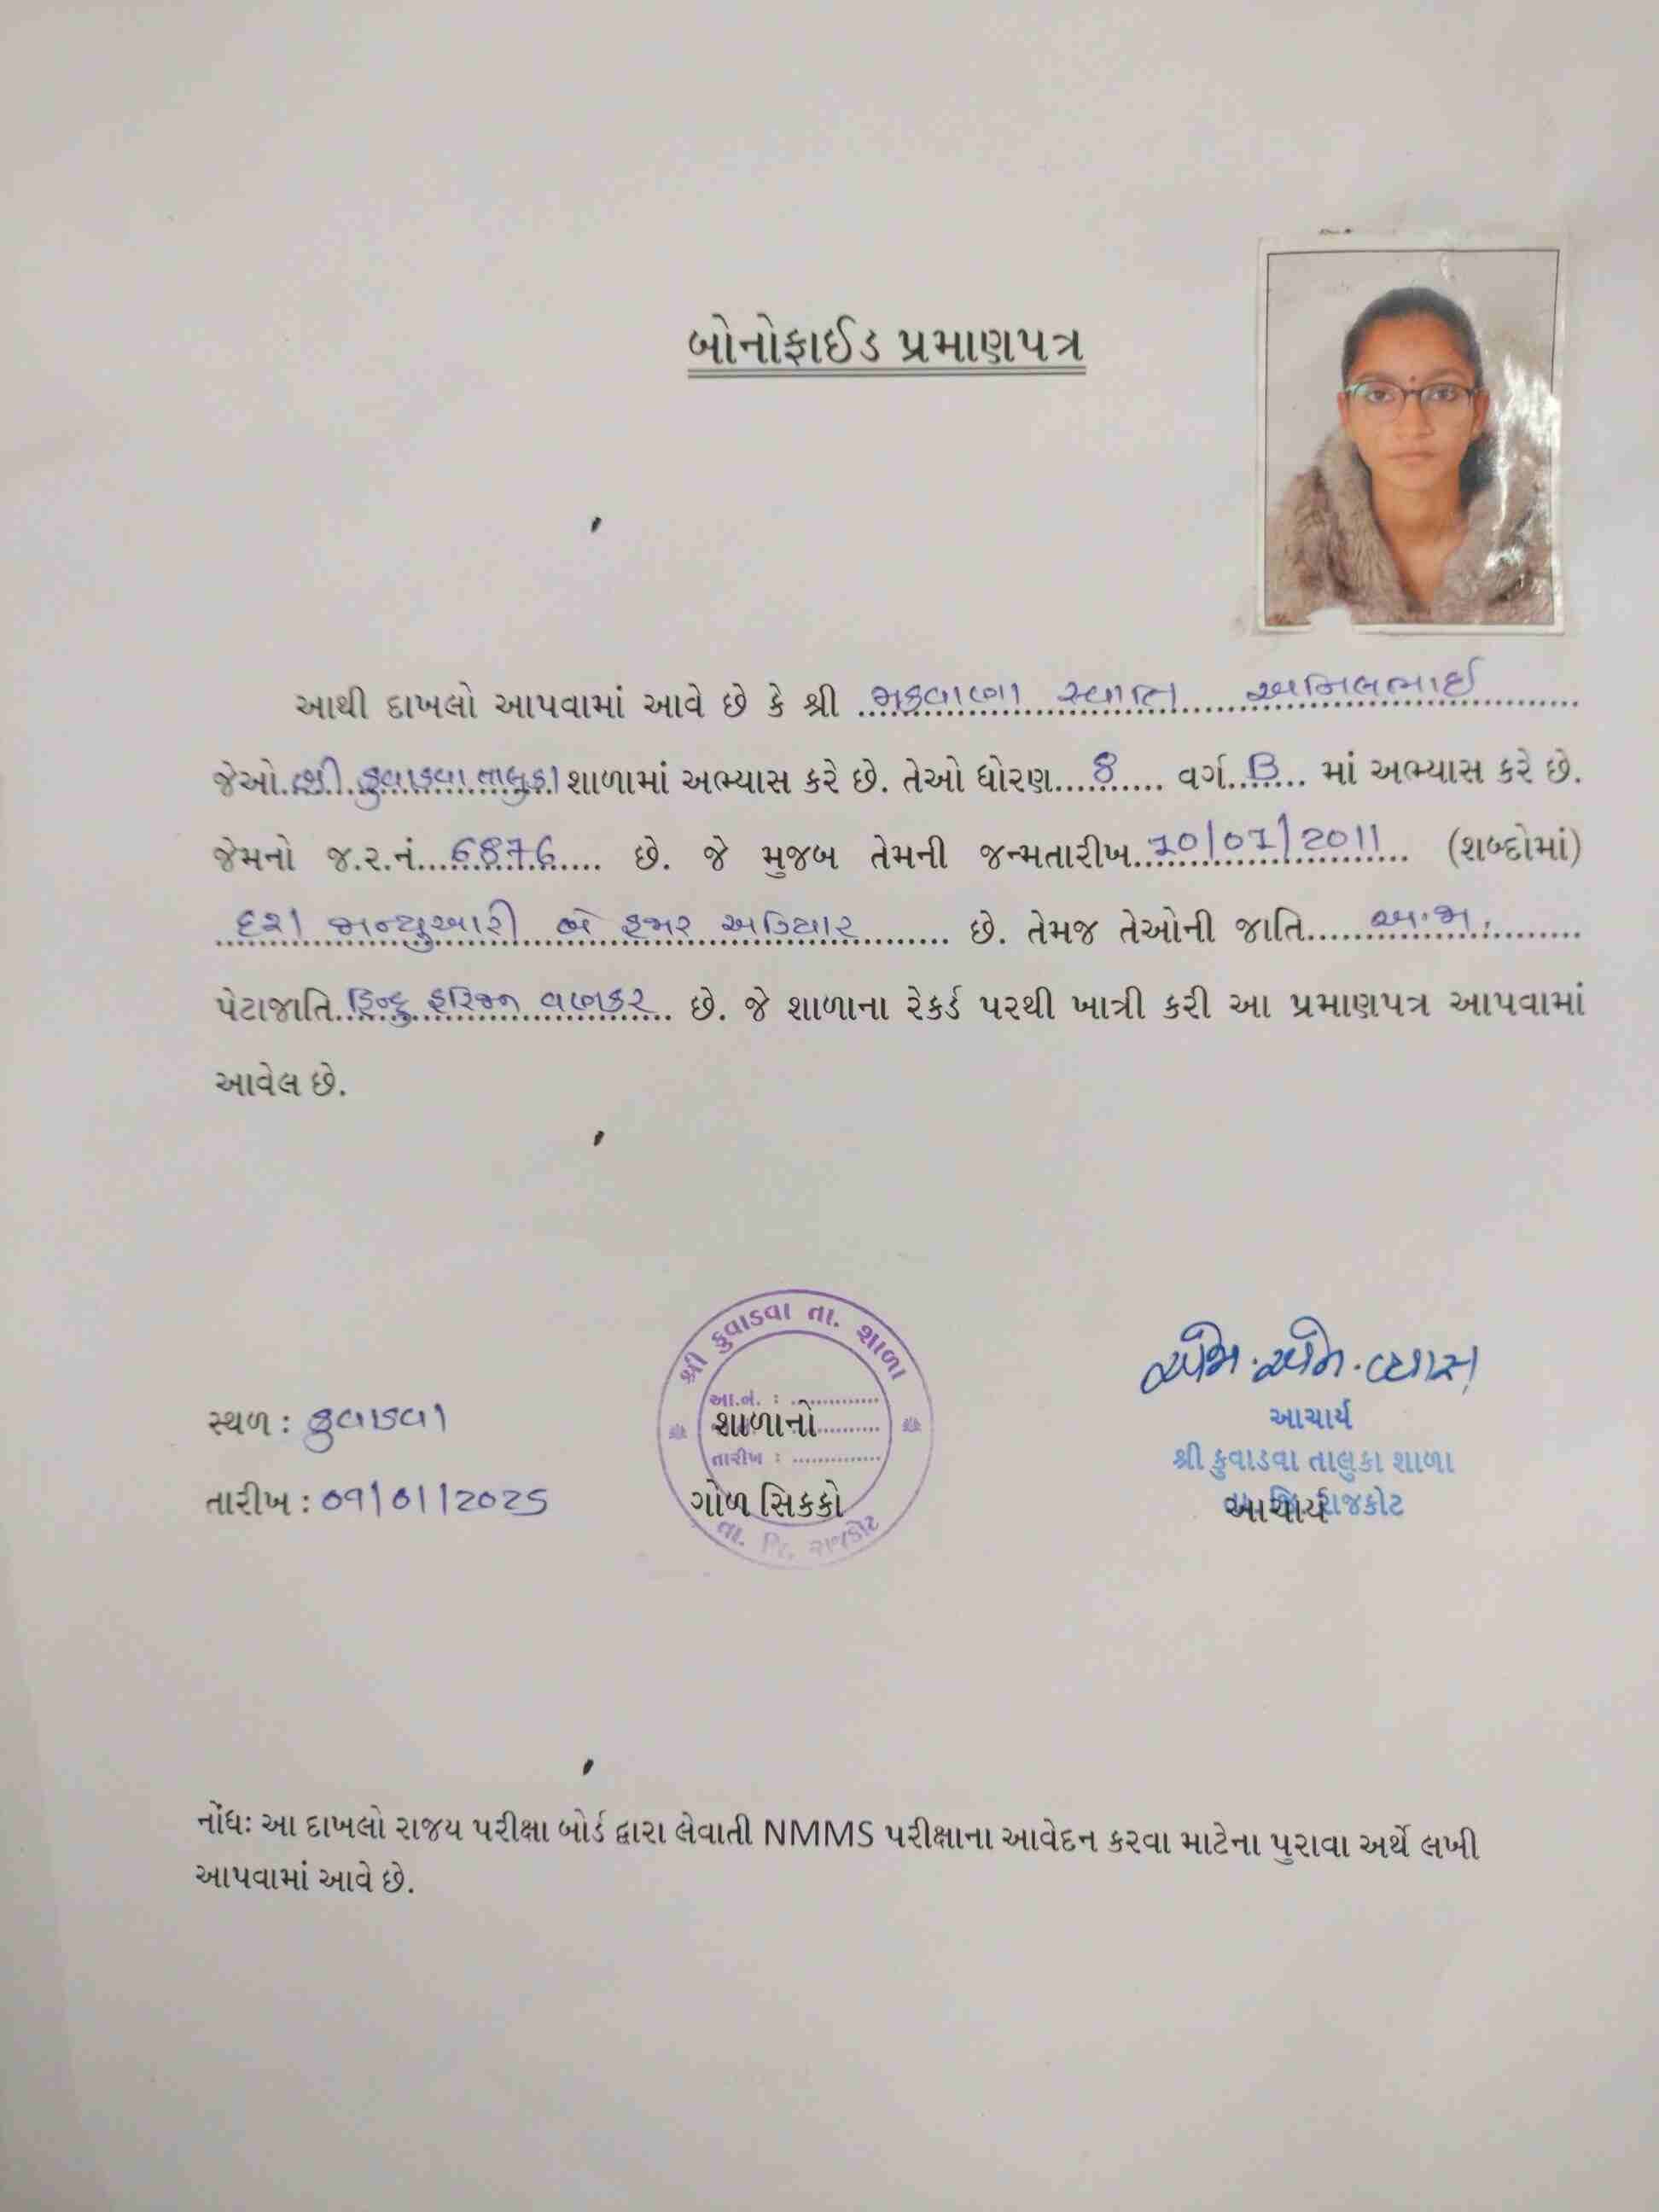 બોનોફાઈડ પ્રમાણપત્ર
આથી દાખલો આપવામાં આવે છે કે શ્રી મકવાણા સ્વાતિ અનિલભાઈ
જેઓ શ્રી કુવાડવા તાલુકા શાળામાં અભ્યાસ કરે છે. તેઓ ધોરણ 8 વર્ગ B માં અભ્યાસ કરે છે.
જેમનો જ.ર.નં 6876 છે. જે મુજબ તેમની જન્મતારીખ 10/01/2011 (શબ્દોમાં)
દશ જાન્યુઆરી બે હજાર અગિયાર છે. તેમજ તેઓની જાતિ અ.જા.
પેટાજાતિ હિન્દુ હરિજન વણકર છે. જે શાળાના રેકર્ડ પરથી ખાત્રી કરી આ પ્રમાણપત્ર આપવામાં
આવેલ છે.
શ્રી કુવાડવા તા. શાળા
આ.નં. :
શાળાનો
તારીખ :
ગોળ સિકકો
તા. જિ. રાજકોટ
એમ.એમ. વ્યાસ
આચાર્ય
શ્રી કુવાડવા તાલુકા શાળા
તા. જિ. રાજકોટ
આચાર્ય
સ્થળ : કુવાડવા
તારીખ : 09/01/2025
નોંધઃ આ દાખલો રાજય પરીક્ષા બોર્ડ દ્વારા લેવાતી NMMS પરીક્ષાના આવેદન કરવા માટેના પુરાવા અર્થે લખી
આપવામાં આવે છે.